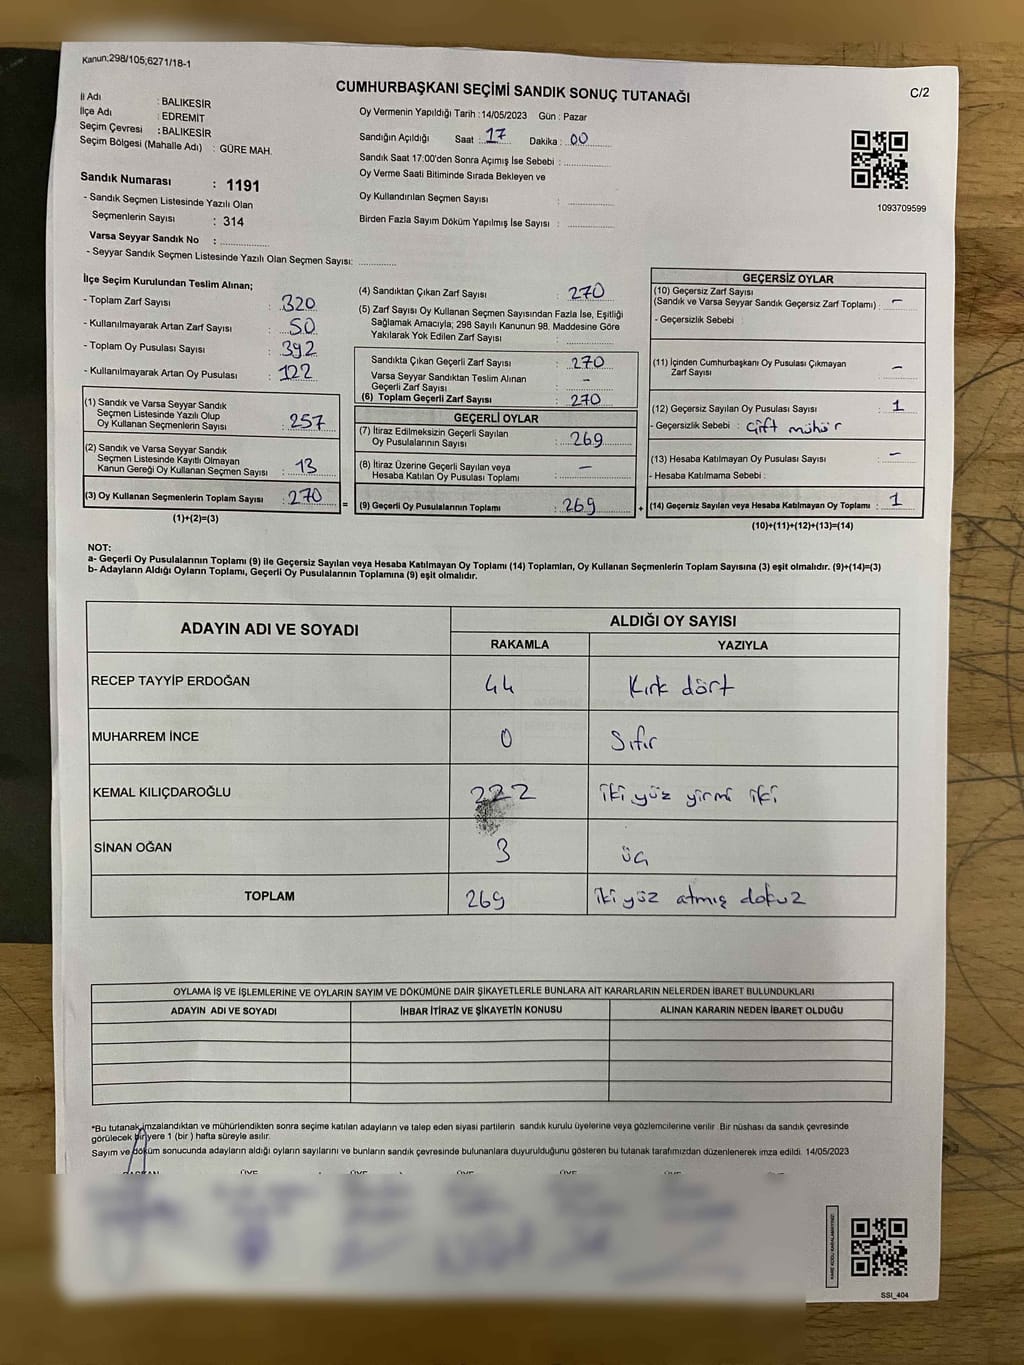 Kanun;298/105;6271/18-1
CUMHURBAŞKANI SEÇİMİ SANDIK SONUÇ TUTANAĞI
C/2
İl Adı : BALIKESİR
İlçe Adı : EDREMİT
Seçim Çevresi : BALIKESİR
Seçim Bölgesi (Mahalle Adı) : GÜRE MAH.
Sandık Numarası : 1191
- Sandık Seçmen Listesinde Yazılı Olan
Seçmenlerin Sayısı : 314
Varsa Seyyar Sandık No :
- Seyyar Sandık Seçmen Listesinde Yazılı Olan Seçmen Sayısı:
Oy Vermenin Yapıldığı Tarih : 14/05/2023 Gün : Pazar
Sandığın Açıldığı Saat : 17 Dakika : 00
Sandık Saat 17:00'den Sonra Açımış İse Sebebi :
Oy Verme Saati Bitiminde Sırada Bekleyen ve
Oy Kullandırılan Seçmen Sayısı :
Birden Fazla Sayım Döküm Yapılmış İse Sayısı :
1093709599
İlçe Seçim Kurulundan Teslim Alınan;
- Toplam Zarf Sayısı : 320
- Kullanılmayarak Artan Zarf Sayısı : 50
- Toplam Oy Pusulası Sayısı : 392
- Kullanılmayarak Artan Oy Pusulası : 122
(1) Sandık ve Varsa Seyyar Sandık
Seçmen Listesinde Yazılı Olup
Oy Kullanan Seçmenlerin Sayısı : 257
(2) Sandık ve Varsa Seyyar Sandık
Seçmen Listesinde Kayıtlı Olmayan
Kanun Gereği Oy Kullanan Seçmen Sayısı : 13
(3) Oy Kullanan Seçmenlerin Toplam Sayısı : 270
(1)+(2)=(3)
(4) Sandıktan Çıkan Zarf Sayısı : 270
(5) Zarf Sayısı Oy Kullanan Seçmen Sayısından Fazla İse, Eşitliği
Sağlamak Amacıyla; 298 Sayılı Kanunun 98. Maddesine Göre
Yakılarak Yok Edilen Zarf Sayısı :
Sandıkta Çıkan Geçerli Zarf Sayısı : 270
Varsa Seyyar Sandıktan Teslim Alınan
Geçerli Zarf Sayısı : -
(6) Toplam Geçerli Zarf Sayısı : 270
GEÇERLİ OYLAR
(7) İtiraz Edilmeksizin Geçerli Sayılan
Oy Pusulalarının Sayısı : 269
(8) İtiraz Üzerine Geçerli Sayılan veya
Hesaba Katılan Oy Pusulaları Toplamı : -
= (9) Geçerli Oy Pusulalarının Toplamı : 269
GEÇERSİZ OYLAR
(10) Geçersiz Zarf Sayısı
(Sandık ve Varsa Seyyar Sandık Geçersiz Zarf Toplamı) : -
- Geçersizlik Sebebi :
(11) İçinden Cumhurbaşkanı Oy Pusulası Çıkmayan
Zarf Sayısı : -
(12) Geçersiz Sayılan Oy Pusulası Sayısı : 1
- Geçersizlik Sebebi : Çift mühür
(13) Hesaba Katılmayan Oy Pusulası Sayısı : -
- Hesaba Katılmama Sebebi :
+ (14) Geçersiz Sayılan veya Hesaba Katılmayan Oy Toplamı : 1
(10)+(11)+(12)+(13)=(14)
NOT:
a- Geçerli Oy Pusulalarının Toplamı (9) ile Geçersiz Sayılan veya Hesaba Katılmayan Oy Toplamı (14) Toplamları, Oy Kullanan Seçmenlerin Toplam Sayısına (3) eşit olmalıdır. (9)+(14)=(3)
b- Adayların Aldığı Oyların Toplamı, Geçerli Oy Pusulalarının Toplamına (9) eşit olmalıdır.
ADAYIN ADI VE SOYADI
ALDIĞI OY SAYISI
RAKAMLA YAZIYLA
RECEP TAYYİP ERDOĞAN 44 Kırk dört
MUHARREM İNCE 0 Sıfır
KEMAL KILIÇDAROĞLU 222 iki yüz yirmi iki
SİNAN OĞAN 3 üç
TOPLAM 269 iki yüz atmış dokuz
OYLAMA İŞ VE İŞLEMLERİNE VE OYLARIN SAYIM VE DÖKÜMÜNE DAİR ŞİKAYETLERLE BUNLARA AİT KARARLARIN NELERDEN İBARET BULUNDUKLARI
ADAYIN ADI VE SOYADI İHBAR İTİRAZ VE ŞİKAYETİN KONUSU ALINAN KARARIN NEDEN İBARET OLDUĞU
*Bu tutanak imzalandıktan ve mühürlendikten sonra seçime katılan adayların ve talep eden siyasi partilerin sandık kurulu üyelerine veya gözlemcilerine verilir. Bir nüshası da sandık çevresinde
görülecek bir yere 1 (bir ) hafta süreyle asılır.
Sayım ve döküm sonucunda adayların aldığı oyların sayılarını ve bunların sandık çevresinde bulunanlara duyurulduğunu gösteren bu tutanak tarafımızdan düzenlenerek imza edildi. 14/05/2023
SSI_404